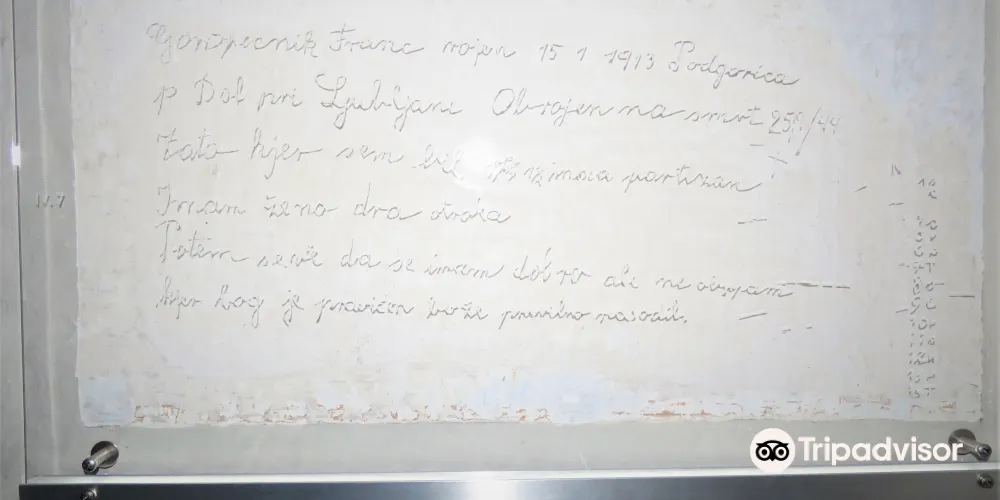 Goropecnik Franc rojen 15 1 1913 Podgorica
p Dol pri Ljubljani Obsojen na smrt 25 /44
Zato kjer sem bil 12 mesca partizan
Imam ženo dva otroka
Potem se vež da se imem dobro ali ne obupam
kjer Bog je pravičen bože pravilno nasodil.
IV. 7
Tripadvisor